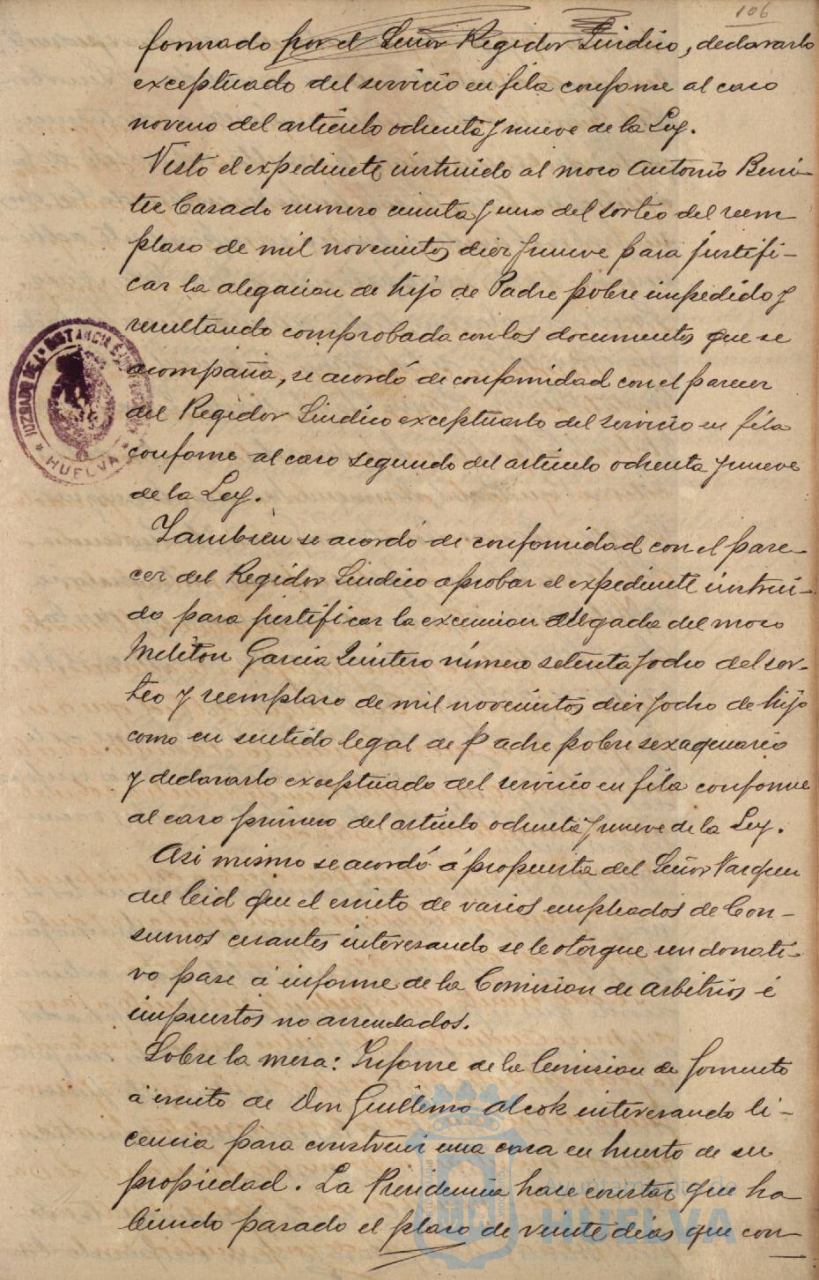 106
formado por el Señor Regidor Sindico, declararlo
exceptuado del servicio en fila conforme al caso
noveno del articulo ochenta y nueve de la Ley.
Visto el expediente instruido al mozo Antonio Beni-
tez Casado numero cuenta y uno del sorteo del reem-
plazo de mil novecientos diez y nueve para justifi-
car la alegacion de hijo de Padre pobre impedido y
resultando comprobada con los documentos que se
acompaña, se acordó de conformidad con el parecer
del Regidor Sindico exceptuarlo del servicio en fila
conforme al caso segundo del articulo ochenta y nueve
de la Ley.
Tambien se acordó de conformidad con el pare-
cer del Regidor Sindico aprobar el expediente instrui-
do para justificar la excencion alegada del mozo
Meliton Garcia Quintero número setenta y ocho del sor-
teo y reemplazo de mil novecientos diez y ocho de hijo
como en sentido legal de Padre pobre sexagenario
y declararlo exceptuado del servicio en fila conforme
al caso primero del articulo ochenta y nueve de la Ley.
Asi mismo se acordó á propuesta del Señor Vazquez
del Cid que el escrito de varios empleados de Con-
sumos cesantes interesando se le otorgue un donati-
vo pase á informe de la Comision de Arbitrios é
impuestos no arrendados.
Sobre la mesa: Informe de la Comision de Fomento
á escrito de Don Guillermo Alcok interesando li-
cencia para construir una casa en huerto de su
propiedad. La Presidencia hace constar que ha
biendo pasado el plazo de veinte dias que con-
JUZGADO DE 1ª INSTANCIA É
HUELVA
Ayuntamiento de
HUELVA